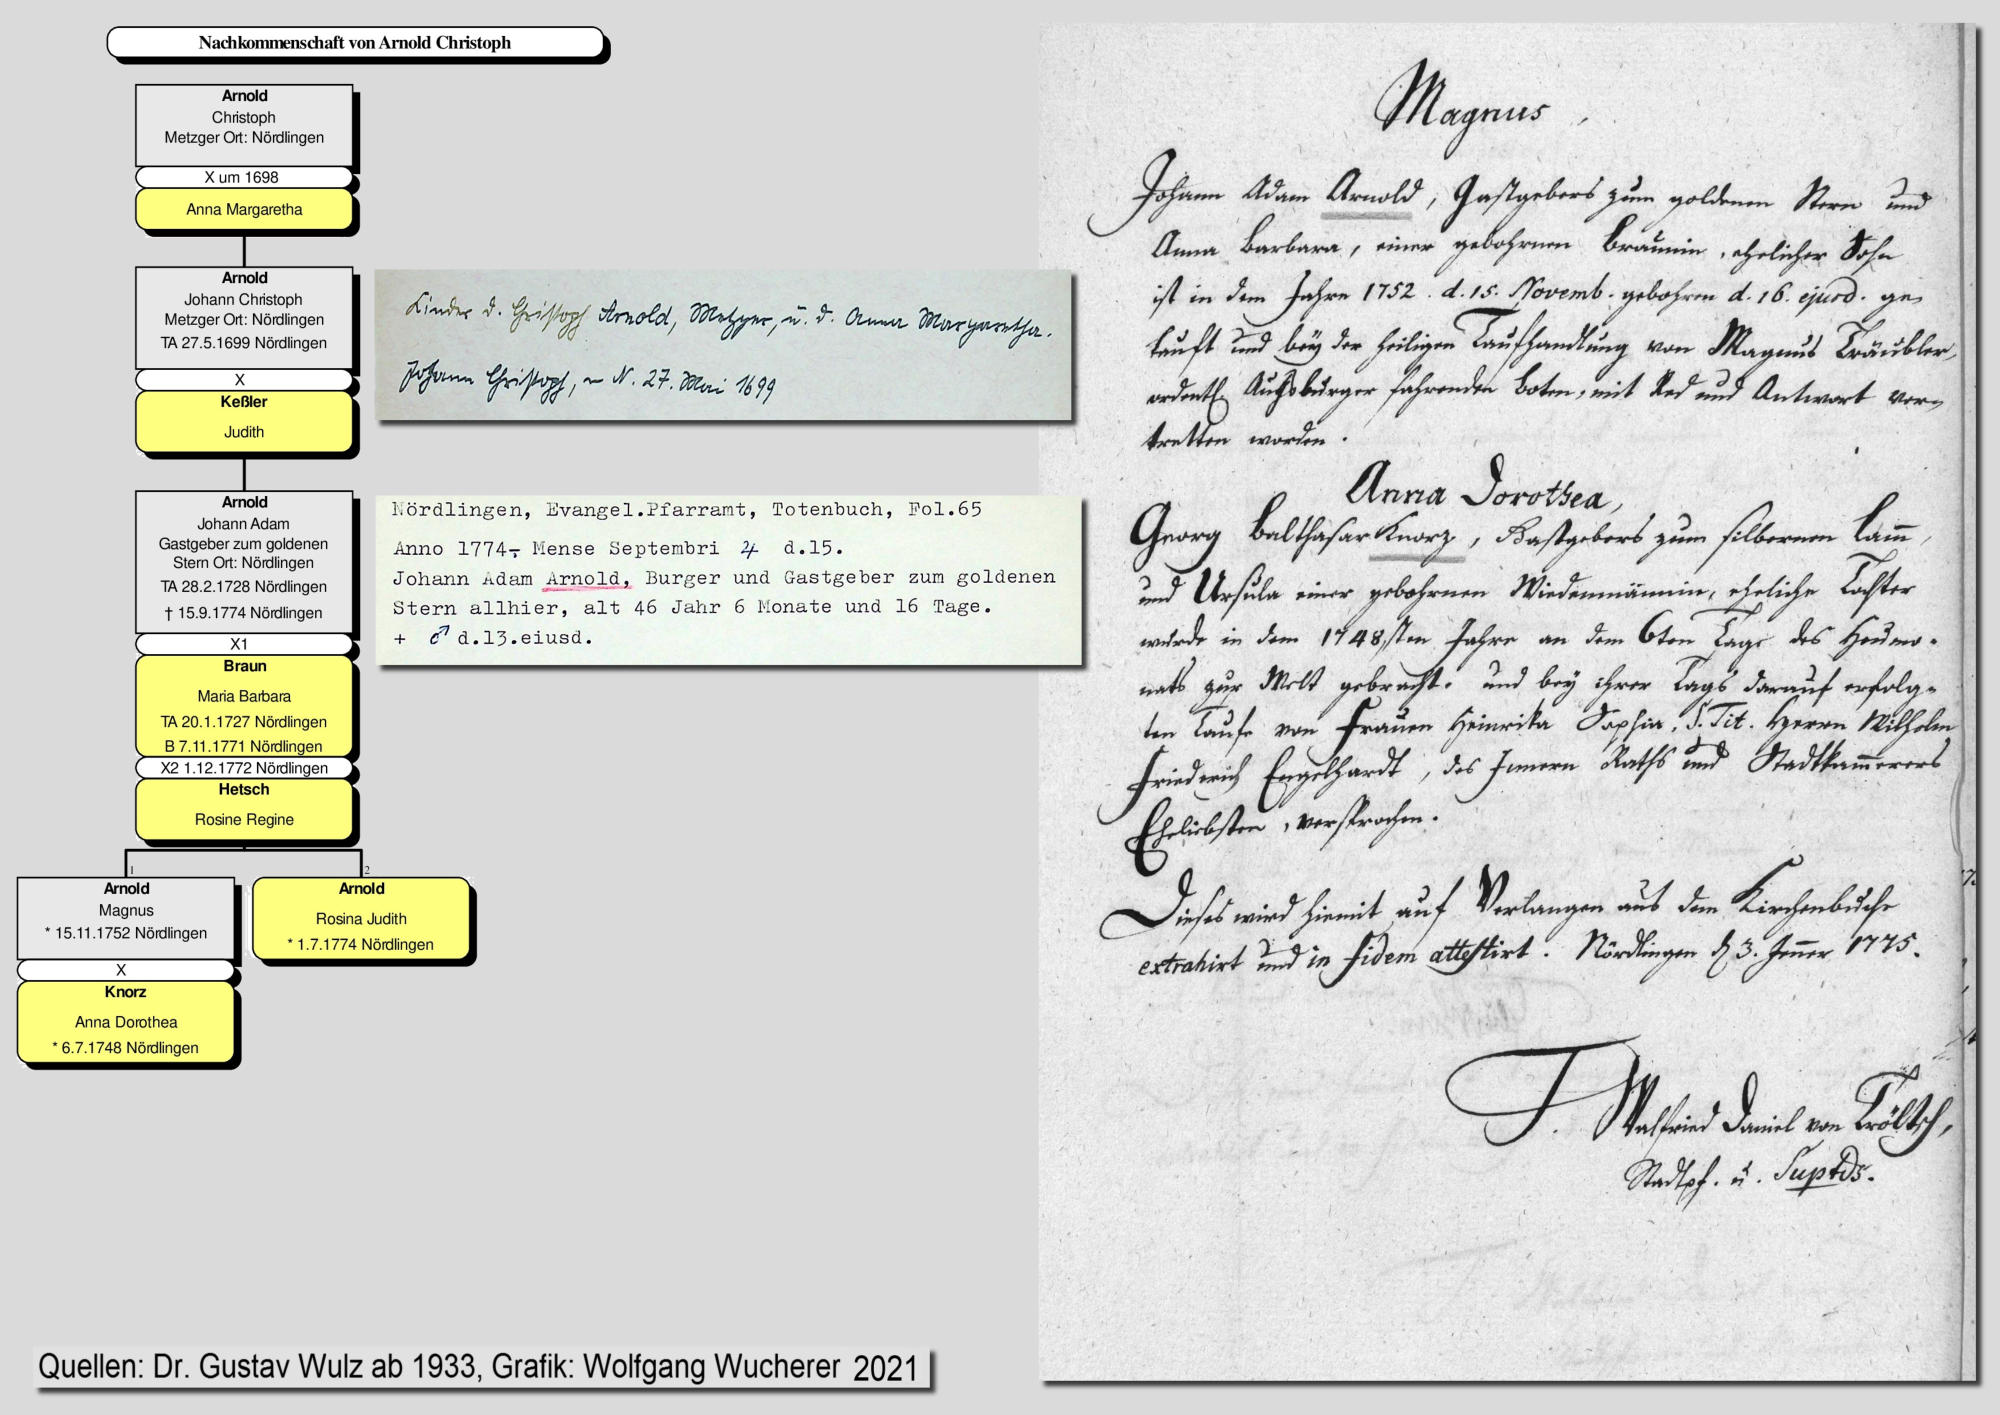 Nachkommenschaft von Arnold Christoph
Arnold
Christoph
Metzger Ort: Nördlingen
X um 1698
Anna Margaretha
Arnold
Johann Christoph
Metzger Ort: Nördlingen
TA 27.5.1699 Nördlingen
X
Keßler
Judith
Arnold
Johann Adam
Gastgeber zum goldenen
Stern Ort: Nördlingen
TA 28.2.1728 Nördlingen
† 15.9.1774 Nördlingen
X1
Braun
Maria Barbara
TA 20.1.1727 Nördlingen
B 7.11.1771 Nördlingen
X2 1.12.1772 Nördlingen
Hetsch
Rosine Regine
1
Arnold
Magnus
* 15.11.1752 Nördlingen
X
Knorz
Anna Dorothea
* 6.7.1748 Nördlingen
2
Arnold
Rosina Judith
* 1.7.1774 Nördlingen
Kinder d. Christoph Arnold, Metzger, u. d. Anna Margaretha.
Johann Christoph, ~ N. 27. Mai 1699
Nördlingen, Evangel.Pfarramt, Totenbuch, Fol.65
Anno 1774- Mense Septembri ♃ d.15.
Johann Adam Arnold, Burger und Gastgeber zum goldenen
Stern allhier, alt 46 Jahr 6 Monate und 16 Tage.
+ ♂ d.13.eiusd.
Magnus
Johann Adam Arnold, Gastgebers zum goldenen Stern und
Anna Barbara, einer gebohrnen Braunin, ehelicher Sohn
ist in dem Jahre 1752. d. 15. Novemb. gebohren d. 16. ejusd. ge-
tauft und bey der heiligen Taufhandlung von Magnus Träubler,
ordentl. Augsburger fahrenden Boten, mit Red und Antwort ver-
tretten worden.
Anna Dorothea,
Georg Balthasar Knorz, Gastgebers zum silbernen Lam̅,
und Ursula einer gebohrnen Wiedenmännin, eheliche Tochter
wurde in dem 1748sten Jahre an dem 6ten Tage des Heumo-
nats zur Welt gebracht. und bey ihrer Tags darauf erfolg-
ten Taufe von Frauen Heinrika Sophia, S. Tit. Herrn Wilhelm
Friederich Engelhardt, des Innern Raths und Stadtkam̅erers
Eheliebsten, versprochen.
Dieses wird hiemit auf Verlangen aus dem Kirchenbuche
extrahirt und in fidem attestirt. Nördlingen d. 3. Jen̅er 1775.
T. Walfried Daniel von Tröltsch,
Stadtpf. u. Suptds.
Quellen: Dr. Gustav Wulz ab 1933, Grafik: Wolfgang Wucherer 2021